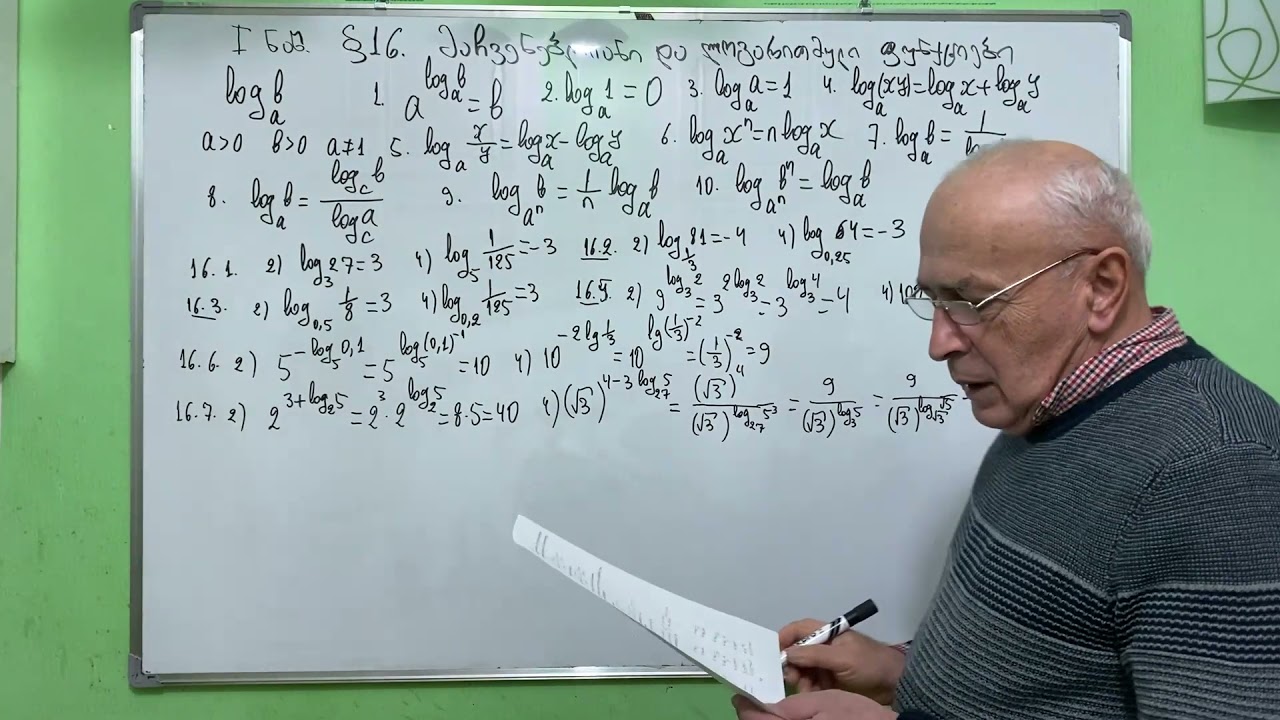 I ნაწ. §16. მაჩვენებლიანი და ლოგარითმული ფუნქციები
logₐb 1. a^(logₐb) = b 2. logₐ1 = 0 3. logₐa = 1 4. logₐ(xy) = logₐx + logₐy
a>0 b>0 a≠1 5. logₐ(x/y) = logₐx − logₐy 6. logₐxⁿ = n logₐx 7. logₐb = 1/
8. logₐb = log_c b / log_c a 9. log_(aⁿ) b = 1/n logₐb 10. log_(aⁿ) bⁿ = logₐb
16.1. 2) log₃27 = 3 4) log₅ 1/125 = −3 16.2. 2) log_(1/3) 81 = −4 4) log_(0,25) 64 = −3
16.3. 2) log_(0,5) 1/8 = 3 4) log_(0,2) 1/125 = 3 16.5. 2) 9^(log₃2) = 3^(2log₃2) = 3^(log₃4) = 4 4)
16.6. 2) 5^(−log₅0,1) = 5^(log₅(0,1)⁻¹) = 10 4) 10^(−2lg 1/3) = 10^(lg(1/3)⁻²) = (1/3)⁻² = 9
16.7. 2) 2^(3+log₂5) = 2³ · 2^(log₂5) = 8·5 = 40 4) (√3)^(4−3log₂₇5) = (√3)⁴ / (√3)^(log₂₇5³) = 9 / (√3)^(log₃5) = 9 / (√3)^(log_(√3) √5)